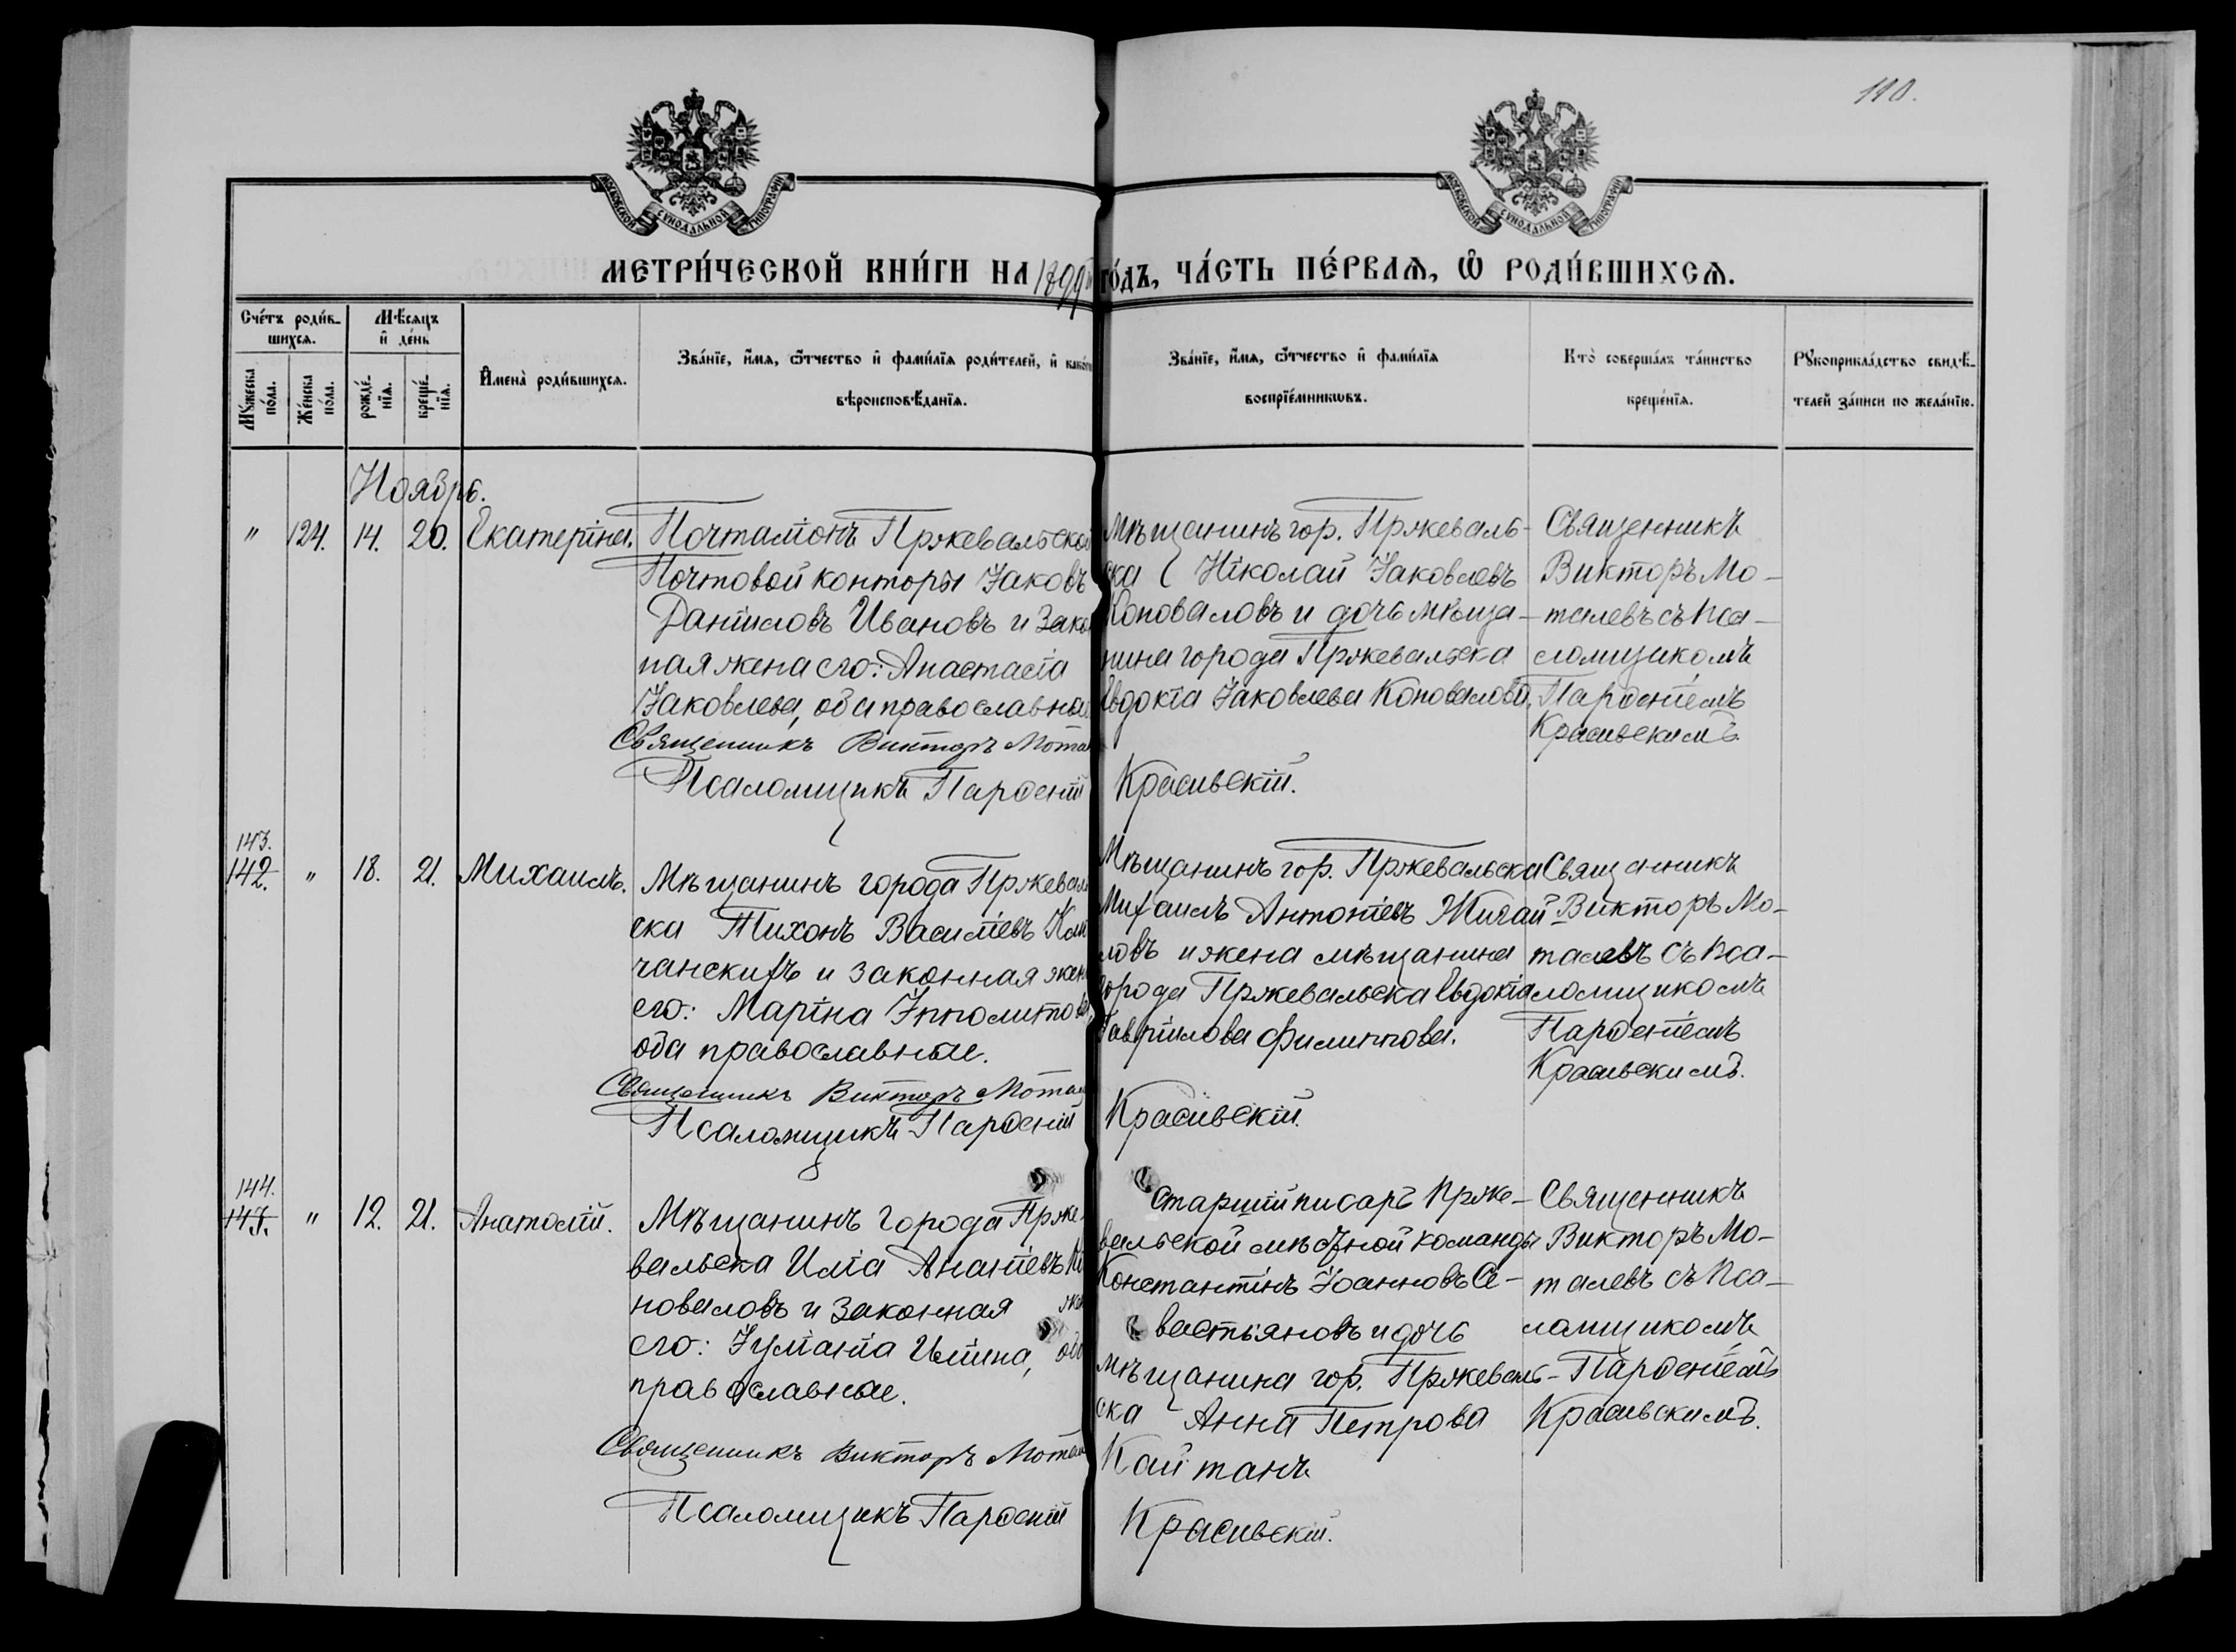 110.
МОСКОВСКОЙ СѴНОДАЛЬНОЙ ТИПОГРАФІИ
МОСКОВСКОЙ СѴНОДАЛЬНОЙ ТИПОГРАФІИ
МЕТРИ́ЧЕСКОЙ КНИ́ГИ НА 1899 ГО́ДЪ, ЧА́СТЬ ПЕ́РВАѦ, Ѡ҆ РОДИ́ВШИХСѦ.
Сче́тъ роди́в-
шихсѧ.
Мѣ́сѧцъ
и҆ де́нь
Мꙋ́жеска по́ла.
Же́нска по́ла.
рожде́-
нїѧ.
креще́-
нїѧ.
И҆мена̀ роди́вшихсѧ.
Зва́нїе, и҆́мѧ, ѻ҆́тчество и҆ фами́лїѧ роди́телей, и҆ како́гѡ
вѣроисповѣ́данїѧ.
Зва́нїе, и҆́мѧ, ѻ҆́тчество и҆ фами́лїѧ
воспрїе́мникѡвъ.
Кто̀ соверша́лъ та́инство
креще́нїѧ.
Рꙋкоприкла́дство свидѣ́-
телей за́писи по жела́нїю.
Ноябрь.
" 124. 14. 20. Екатеріна.
Почталіонъ Пржевальской
Почтовой конторы Іаковъ
Даніиловъ Ивановъ и закон
ная жена его: Анастасіа
Іаковлева, оба православные
Священникъ Викторъ Мотал
Псаломщикъ Парѳеній Красивскій.
Мѣщанинъ гор. Пржеваль-
ска Ніколай Іаковлевъ
Коноваловъ и дочь мѣща-
нина города Пржевальска
Евдокіа Іаковлева Коновалова.
Священникъ
Викторъ Мо-
талевъ съ Пса-
ломщикомъ
Парѳеніемъ
Красивскимъ.
143.
142. " 18. 21. Михаилъ.
Мѣщанинъ города Пржеваль
ска Тихонъ Василіевъ
чанскихъ и законная жена
его: Маріна Ипполитова,
оба православные.
Священникъ Викторъ Мотал
Псаломщикъ Парѳеній Красивскій.
Мѣщанинъ гор. Пржевальска
Михаилъ Антоніевъ Жигай-
ловъ и жена мѣщанина
города Пржевальска Евдокіа
Гавріилова Филиппова.
Священникъ
Викторъ Мо-
талевъ съ Пса-
ломщикомъ
Парѳеніемъ
Красивскимъ.
144.
143. " 12. 21. Анатолій.
Мѣщанинъ города Прже-
вальска Иліа Ананіевъ Ко
новаловъ и законная жен
его: Іуліаніа Иліина, оба
православные.
Священникъ Викторъ Мотал
Псаломщикъ Парѳеній Красивскій.
Старшій писарь Прже-
вальской мѣстной команды
Константінъ Іоанновъ Се-
вастьяновъ и дочь
мѣщанина гор. Пржеваль-
ска Анна Петрова
Кайтанъ
Священникъ
Викторъ Мо-
талевъ съ Пса-
ломщикомъ
Парѳеніемъ
Красивскимъ.